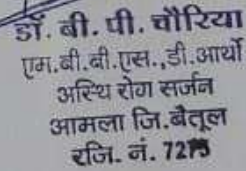 डॉ. बी. पी. चौरिया
एम.बी.बी.एस.,डी.आर्थो
अस्थि रोग सर्जन
आमला जि.बैतूल
रजि. नं.